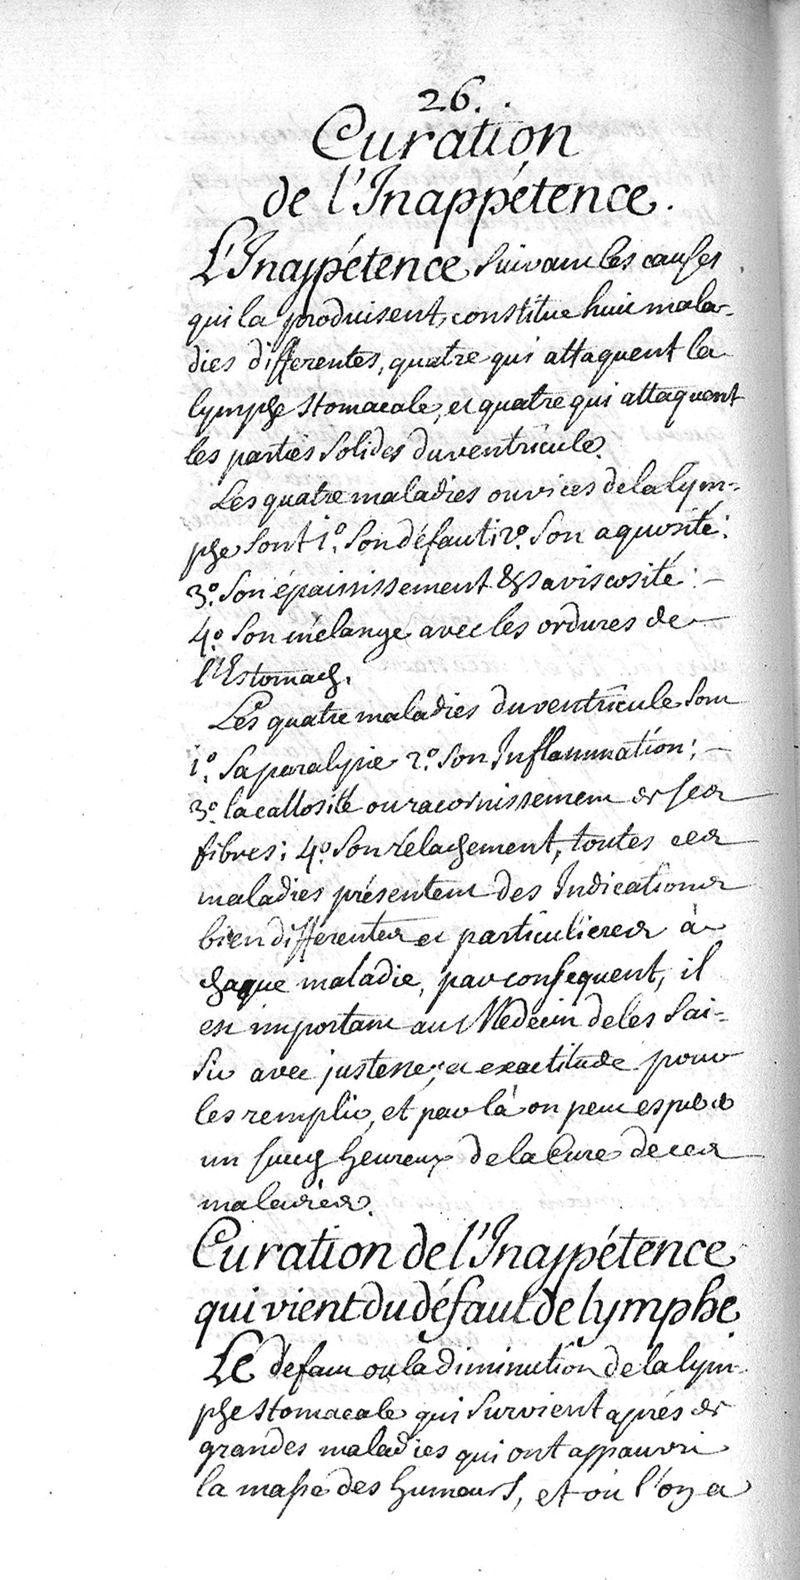 26.
Curation
de l'Inappétence.
L'Inappétence suivant les causes
qui la produisent, constitue huit mala-
dies differentes, quatre qui attaquent la
lymphe stomacale, et quatre qui attaquent
les parties solides du ventricule.
Les quatre maladies ou vices de la lym-
phe sont 1.º son défaut; 2.º son aquosité:
3.º son épaississement & sa viscosité: -
4.º son mélange avec les ordures de
l'Estomach.
Les quatre maladies du ventricule sont
1.º sa paralysie 2.º son Inflammation; -
3.º la callosité ou racornissement de ses
fibres; 4.º son rélachement, toutes ces
maladies présentent des Indications
bien differentes et particulieres à
chaque maladie, par consequent, il
est important au Medecin de les sai-
sir avec justesse, et exactitude pour
les remplir, et par là on peut esperer
un succez heureux de la Cure de ces
maladies.
Curation de l'Inappétence
qui vient du défaut de lymphe
Le défaut ou la diminution de la lym-
phe stomacale qui survient aprés de
grandes maladies qui ont appauvri
la masse des humeurs, et où l'on a